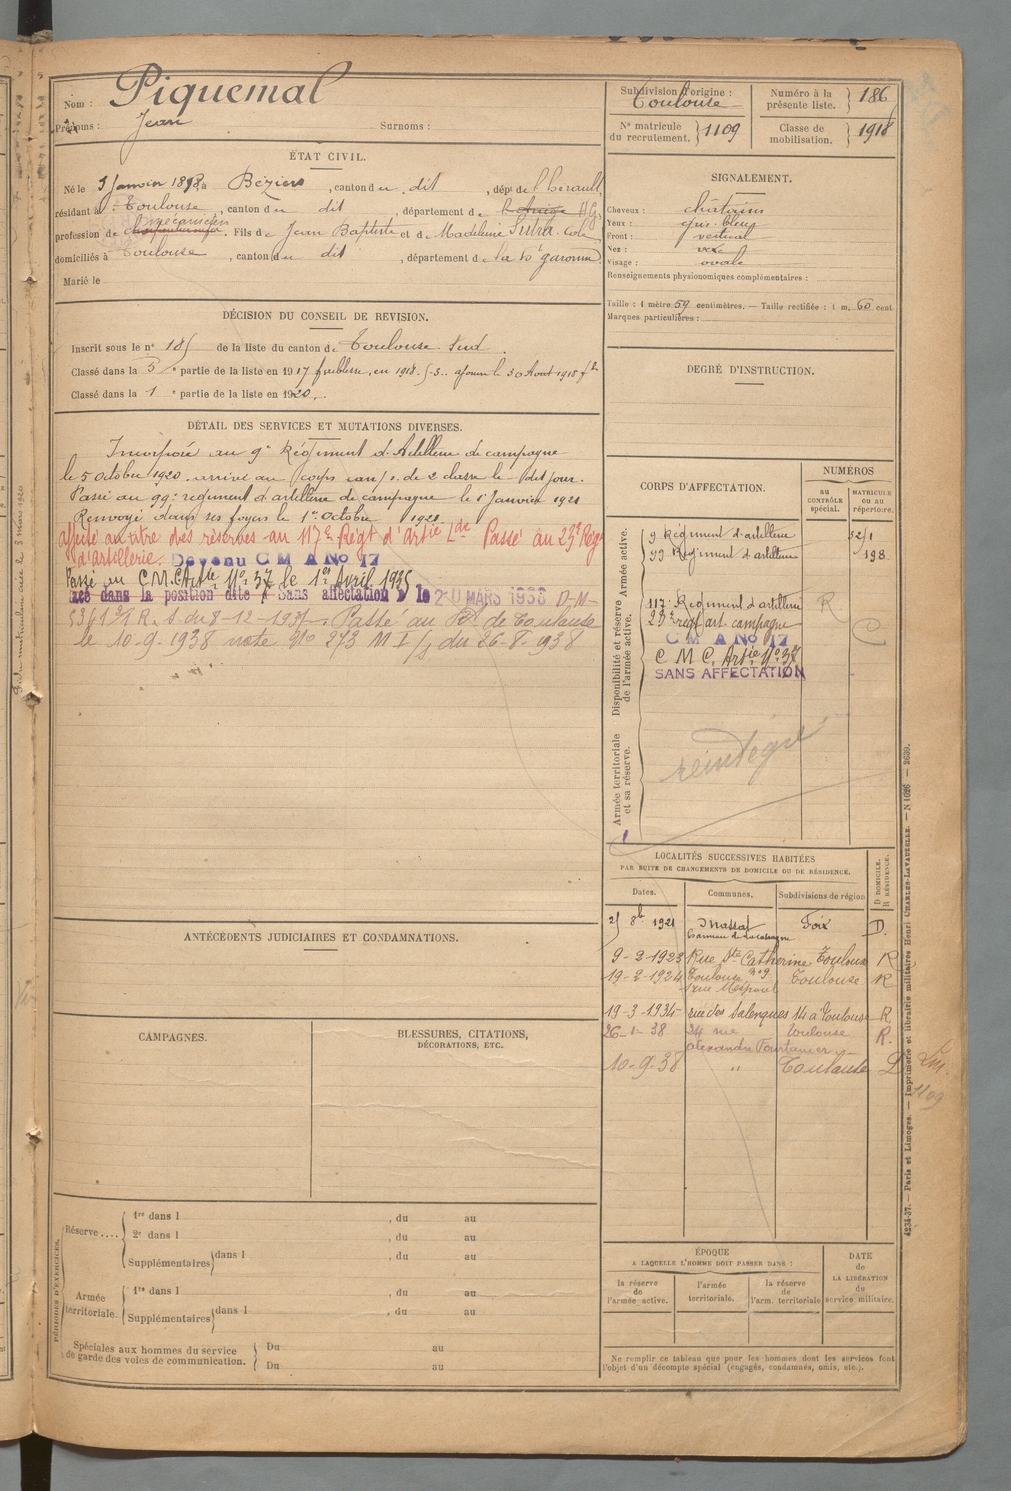 Nom : Piquemal
Prénoms : Jean Surnoms :
Subdivision d'origine : Toulouse
Numéro à la présente liste. 186
N° matricule du recrutement. 1109
Classe de mobilisation. 1918
ÉTAT CIVIL.
Né le Janvier 1898 à Béziers, canton du dit, dépt de l'hérault,
résidant à Toulouse, canton du dit, département de H G,
profession de mécanicien. Fils de Jean Baptiste et de Madeleine Sutra
domiciliés à Toulouse, canton du dit, département de la Hte garonne.
Marié le
SIGNALEMENT.
Cheveux : chatains
Yeux : gris bleus
Front : vertical
Nez :
Visage : ovale
Renseignements physionomiques complémentaires :
Taille : 1 mètre 59 centimètres. — Taille rectifiée : 1 m. 60 cent
Marques particulières :
DÉCISION DU CONSEIL DE REVISION.
Inscrit sous le n° 185 de la liste du canton de Toulouse Sud.
Classé dans la 5 e partie de la liste en 1917 faiblesse, en 1918. ajourné le 30 Aout 1918
Classé dans la 1 e partie de la liste en 1920.
DEGRÉ D'INSTRUCTION.
DÉTAIL DES SERVICES ET MUTATIONS DIVERSES.
Incorporé au 9e Régiment d'Artillerie de campagne
le 5 octobre 1920. arrivé au corps can/ s. de 2 classe le dit jour.
Passé au 99e régiment d'artillerie de campagne le 1er Janvier 1921
Renvoyé dans ses foyers le 1er Octobre 1921
affecté au titre des réserves au 117e Régt d'Artie Lde Passé au 23e Régt
d'artillerie. Devenu C M A No 17
Passé au C.M.C. Artie No 37 le 1er Avril 1935
lacé dans la position dite Sans affectation le 20 MARS 1938 D-M-
R. S. du 8-12-1937. Passé au de Toulouse
le 10-9-1938 note No 273 M I/s du 26-8-1938
CORPS D'AFFECTATION.
NUMÉROS
au contrôle spécial.
MATRICULE ou au répertoire.
Armée active.
9 Régiment d'artillerie
99 Régiment d'artillerie 198
Disponibilité et réserve de l'armée active.
117e Régiment d'artillerie R
23e régt art. campagne
C M A No 17
C M C. Artie No 37
SANS AFFECTATION
Armée territoriale et sa réserve.
réintégré
LOCALITÉS SUCCESSIVES HABITÉES
PAR SUITE DE CHANGEMENTS DE DOMICILE OU DE RÉSIDENCE.
Dates. Communes. Subdivisions de région D DOMICILE. R RÉSIDENCE.
25 8b 1921 Massat Foix D.
9-2-1923 Rue Ste Catherine Toulouse R
19-2-1924 Toulouse Toulouse R
19-3-1934 rue des Salenques 14 à Toulouse R
26-1-38 34 rue Toulouse R.
alexandre Fourtanier
10-9-38 " Toulouse
1109
ANTÉCÉDENTS JUDICIAIRES ET CONDAMNATIONS.
CAMPAGNES.
BLESSURES, CITATIONS,
DÉCORATIONS, ETC.
PÉRIODES D'EXERCICES.
Réserve.... 1re dans l , du au
2e dans l , du au
Supplémentaires dans l , du au
Armée territoriale. 1re dans l , du au
Supplémentaires dans l , du au
Spéciales aux hommes du service Du au
de garde des voies de communication. Du au
ÉPOQUE
A LAQUELLE L'HOMME DOIT PASSER DANS :
la réserve de l'armée active.
l'armée territoriale.
la réserve de l'arm. territoriale
DATE de LA LIBÉRATION du service militaire.
Ne remplir ce tableau que pour les hommes dont les services font
l'objet d'un décompte spécial (engagés, condamnés, omis, etc.).
4234-37. — Paris et Limoges. — Imprimerie et librairie militaires Henri CHARLES-LAVAUZELLE. — N 1026 — 2639.